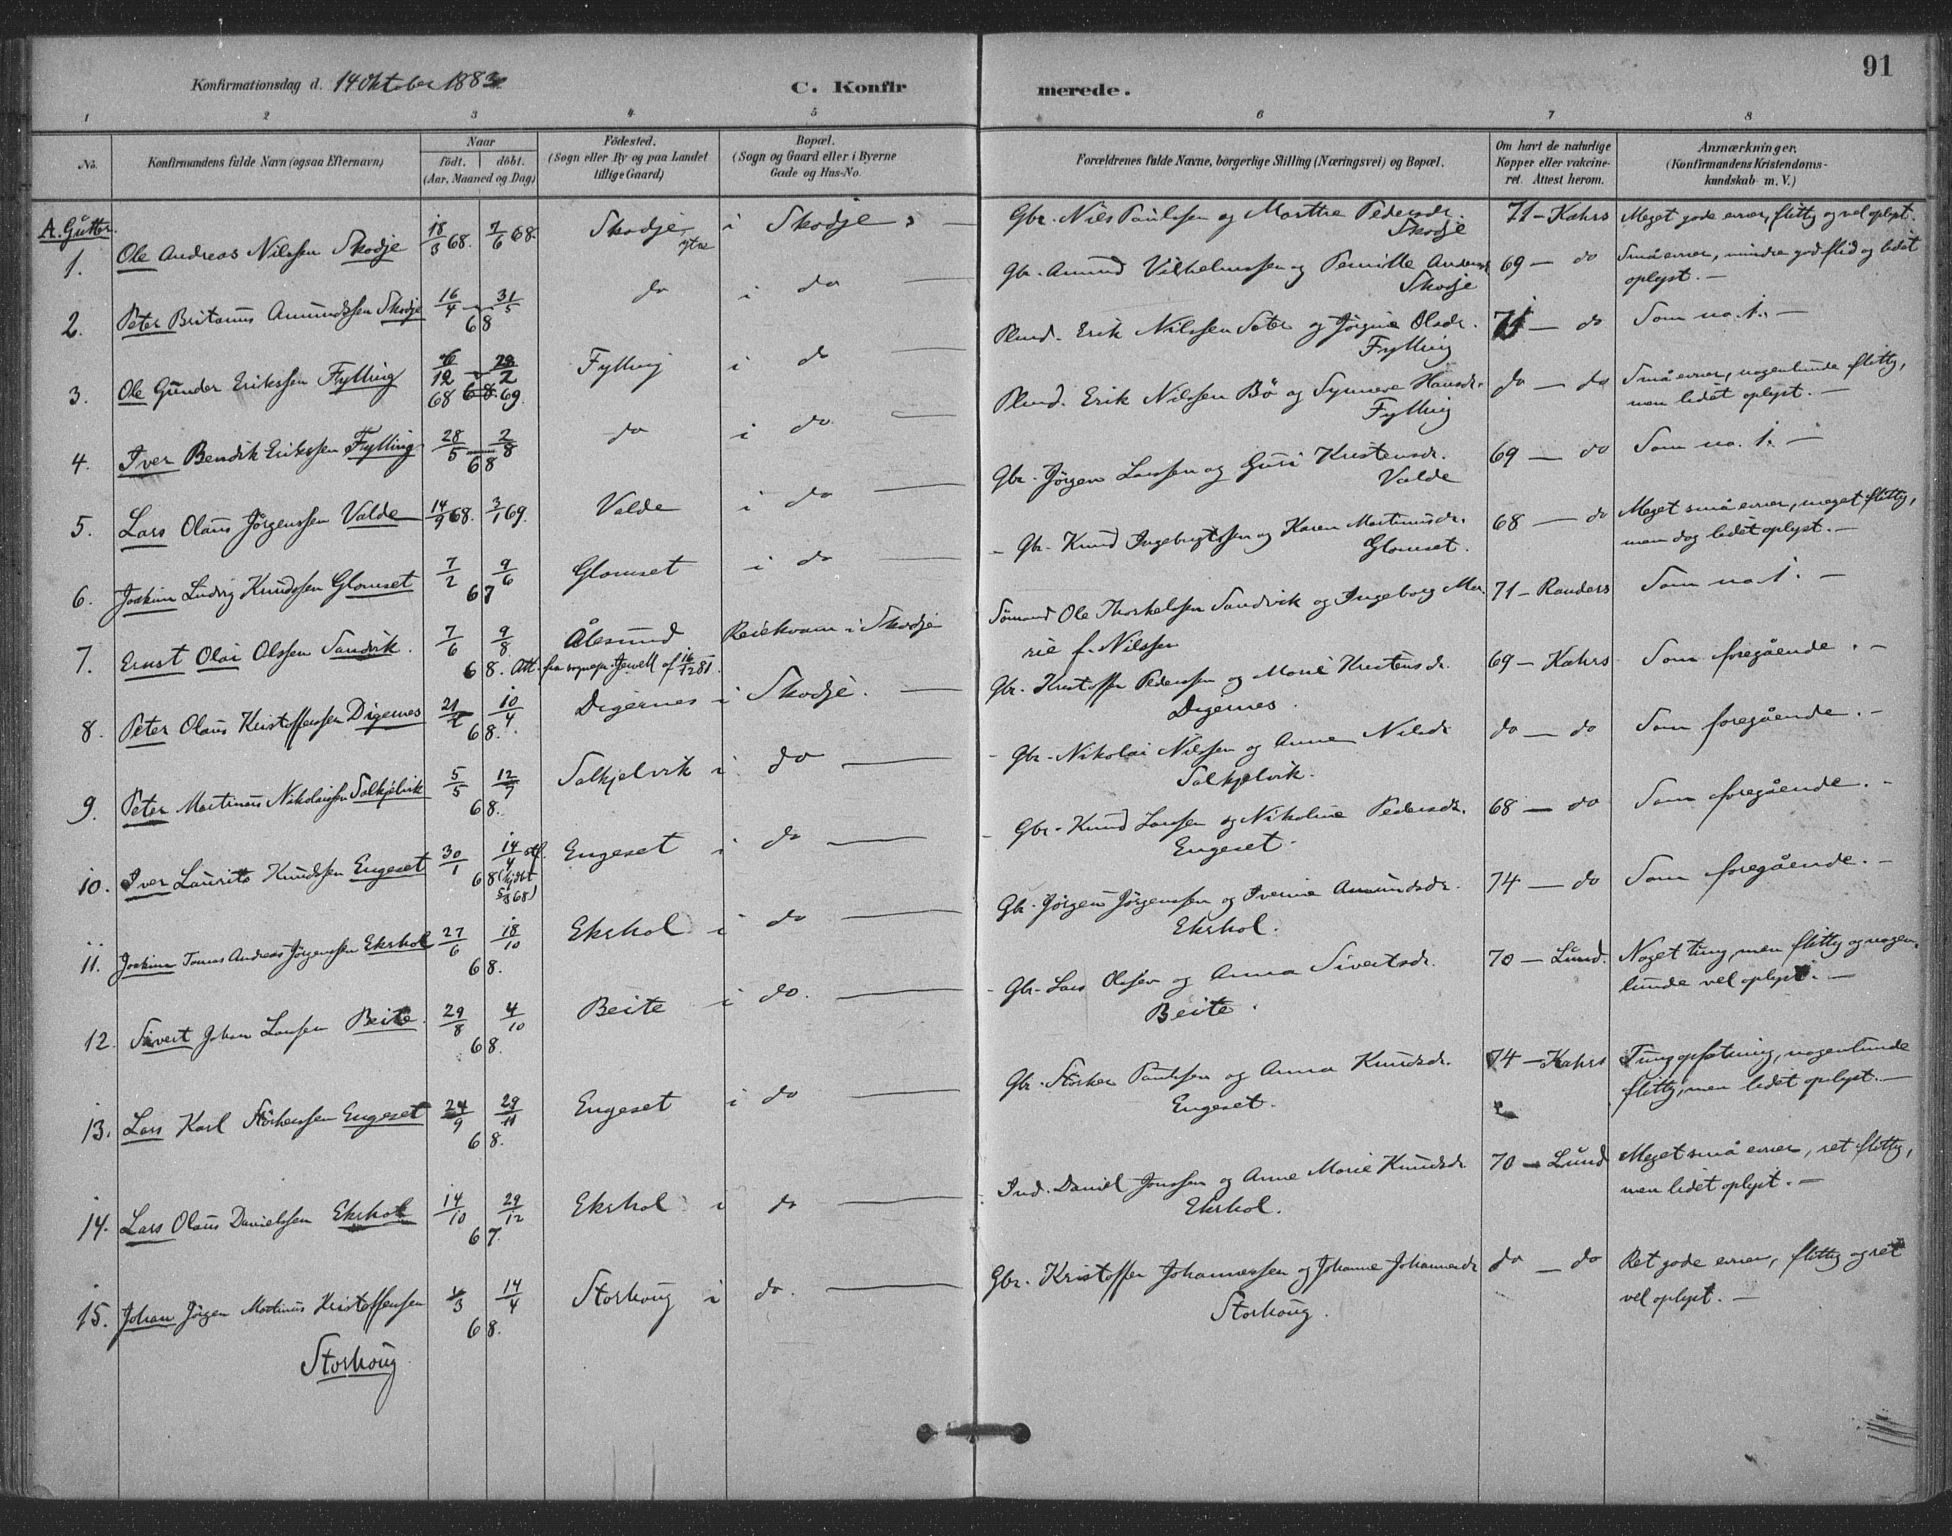 91
Konfirmationsdag d. 14 Oktober 1883
C. Konfir merede.
1 2 3 4 5 6 7 8
No.
Konfirmandens fulde Navn (ogsaa Efternavn)
Naar
födt. döbt.
(Aar, Maaned og Dag)
Födested.
(Sogn eller By og paa Landet
tillige Gaard)
Bopæl.
(Sogn og Gaard eller i Byerne
Gade og Hus-No.
Forældrenes fulde Navne, borgerlige Stilling (Næringsvei) og Bopæl.
Om havt de naturlige
Kopper eller vakcine-
ret. Attest herom.
Anmærkninger.
(Konfirmandens Kristendoms-
kundskab m. V.)
A. Gutter.
1. Ole Andreas Nilssen Skodje 18/3 68. 7/6 68. Skodje ytre i Skodje s — Gbr. Nils Paulssen og Marthe Pedersdr. 71 – Kahrs Meget gode evner, flittig og vel oplyst.
Skodje
2. Peter Britanus Amundssen Skodje 16/4 31/5 68 do i do Gbr. Amund Vilhelmssen og Pernille Andersdr 69 — do Små evner, mindre god flid og lidet
Skodje oplyst. —
3. Ole Gunder Erikssen Fylling 12 68 28/2 69. Fylling i do — Plmd. Erik Nilssen Sæter og Jørgine Olsdr. 71 — do Som no. 1. —
Fylling
4. Iver Bendik Erikssen Fylling 28/5 2/8 68 do i do — Plmd. Erik Nilssen Bö og Synneve Hansdr. do — do Små evner, nogenlunde flittig,
Fylling men lidet oplyst. —
5. Lars Olaus Jørgenssen Valde 14/9 68. 3/1 69. Valde i do — Gbr. Jørgen Larssen og Guri Kristensdr. 69 — do Som no. 1. —
Valde
6. Joakim Ludvig Knudssen Glomset 7/2 9/6 67 Glomset i do — Gbr. Knud Ingebrigtssen og Karen Martinusdr. 68 — do Meget små evner, meget flittig,
Glomset. men dog lidet oplyst. —
7. Ernst Olai Olssen Sandvik. 7/6 9/8 68. Ålesund Reiekvam i Skodje Sømand Ole Thorkelssen Sandvik og Ingeborg Ma- 71 – Randers Som no. 1. —
Att. fra sognepr. Jervell af 16/12 81. rie f. Nilssen
8. Peter Olaus Kristoffersen Digernes 21/2 10/4 68. Digernes i Skodje. — Gbr. Kristoffer Pederssen og Marie Kristensdr. 69 – Kahrs Som foregående. —
Digernes.
9. Peter Martinus Nikolaissen Solkjelvik 5/5 12/7 68. Solkjelvik i do — Gbr. Nikolai Nilssen og Anne Nilsdr do — do Som foregående. —
Solkjelvik.
10. Iver Laurits Knudssen Engeset 30/1 14/4 stf. 68 (hjdbt 5/3 68) Engeset i do — Gbr. Knud Larssen og Nikoline Pedersdr. 68 — do Som foregående. —
Engeset.
11. Joakim Tomas Andreas Jørgenssen Ekrhol 27/6 18/10 68. Ekrhol i do — Gbr. Jørgen Jørgenssen og Iverine Amundsdr. 74 — do Som foregående. —
Ekrhol.
12. Sivert Johan Larssen Beite. 29/8 4/10 68. Beite i do. — Gbr. Lars Olssen og Anna Sivertsdr. 70 — Lund. Noget tung, men flittig og nogen-
Beite. lunde vel oplyst. —
13. Lars Karl Störkerssen Engeset 24/9 29/11 68. Engeset i do — Gbr. Störker Paulssen og Anna Knudsdr. 74 – Kahrs Tung opfatning, nogenlunde
Engeset. flittig, men lidet oplyst. —
14. Lars Olaus Danielssen Ekrhol 14/10 29/12 67. Ekrhol i do — Ind. Daniel Jonssen og Anne Marie Knudsdr 70 – Lund Meget små evner, ret flittig,
Ekrhol. men lidet oplyst. —
15. Johan Jörgen Martinus Kristoffersen 1/3 14/4 68. Storhoug i do. — Gbr. Kristoffer Johannessen og Johanne Johannesdr do — do Ret gode evner, flittig og ret
Storhoug Storhoug. vel oplyst. —